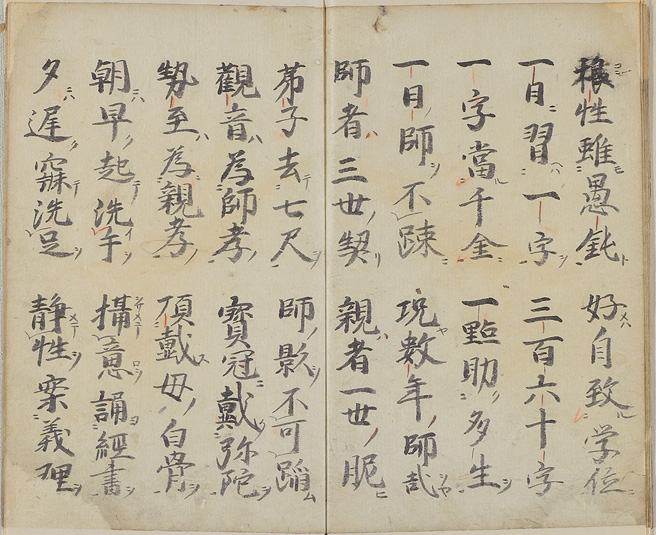 性雖愚鈍 好自致学位
一日習一字 三百六十字
一字當千金 一點助多生
一日師不踈 况數年師哉
師者三世契 親者一世昵
弟子去七尺 師影不可蹈
觀音為師孝 寳冠戴弥陀
勢至為親孝 頂戴母白骨
朝早起洗手 攝意誦經書
夕遅寐洗足 静性案義理